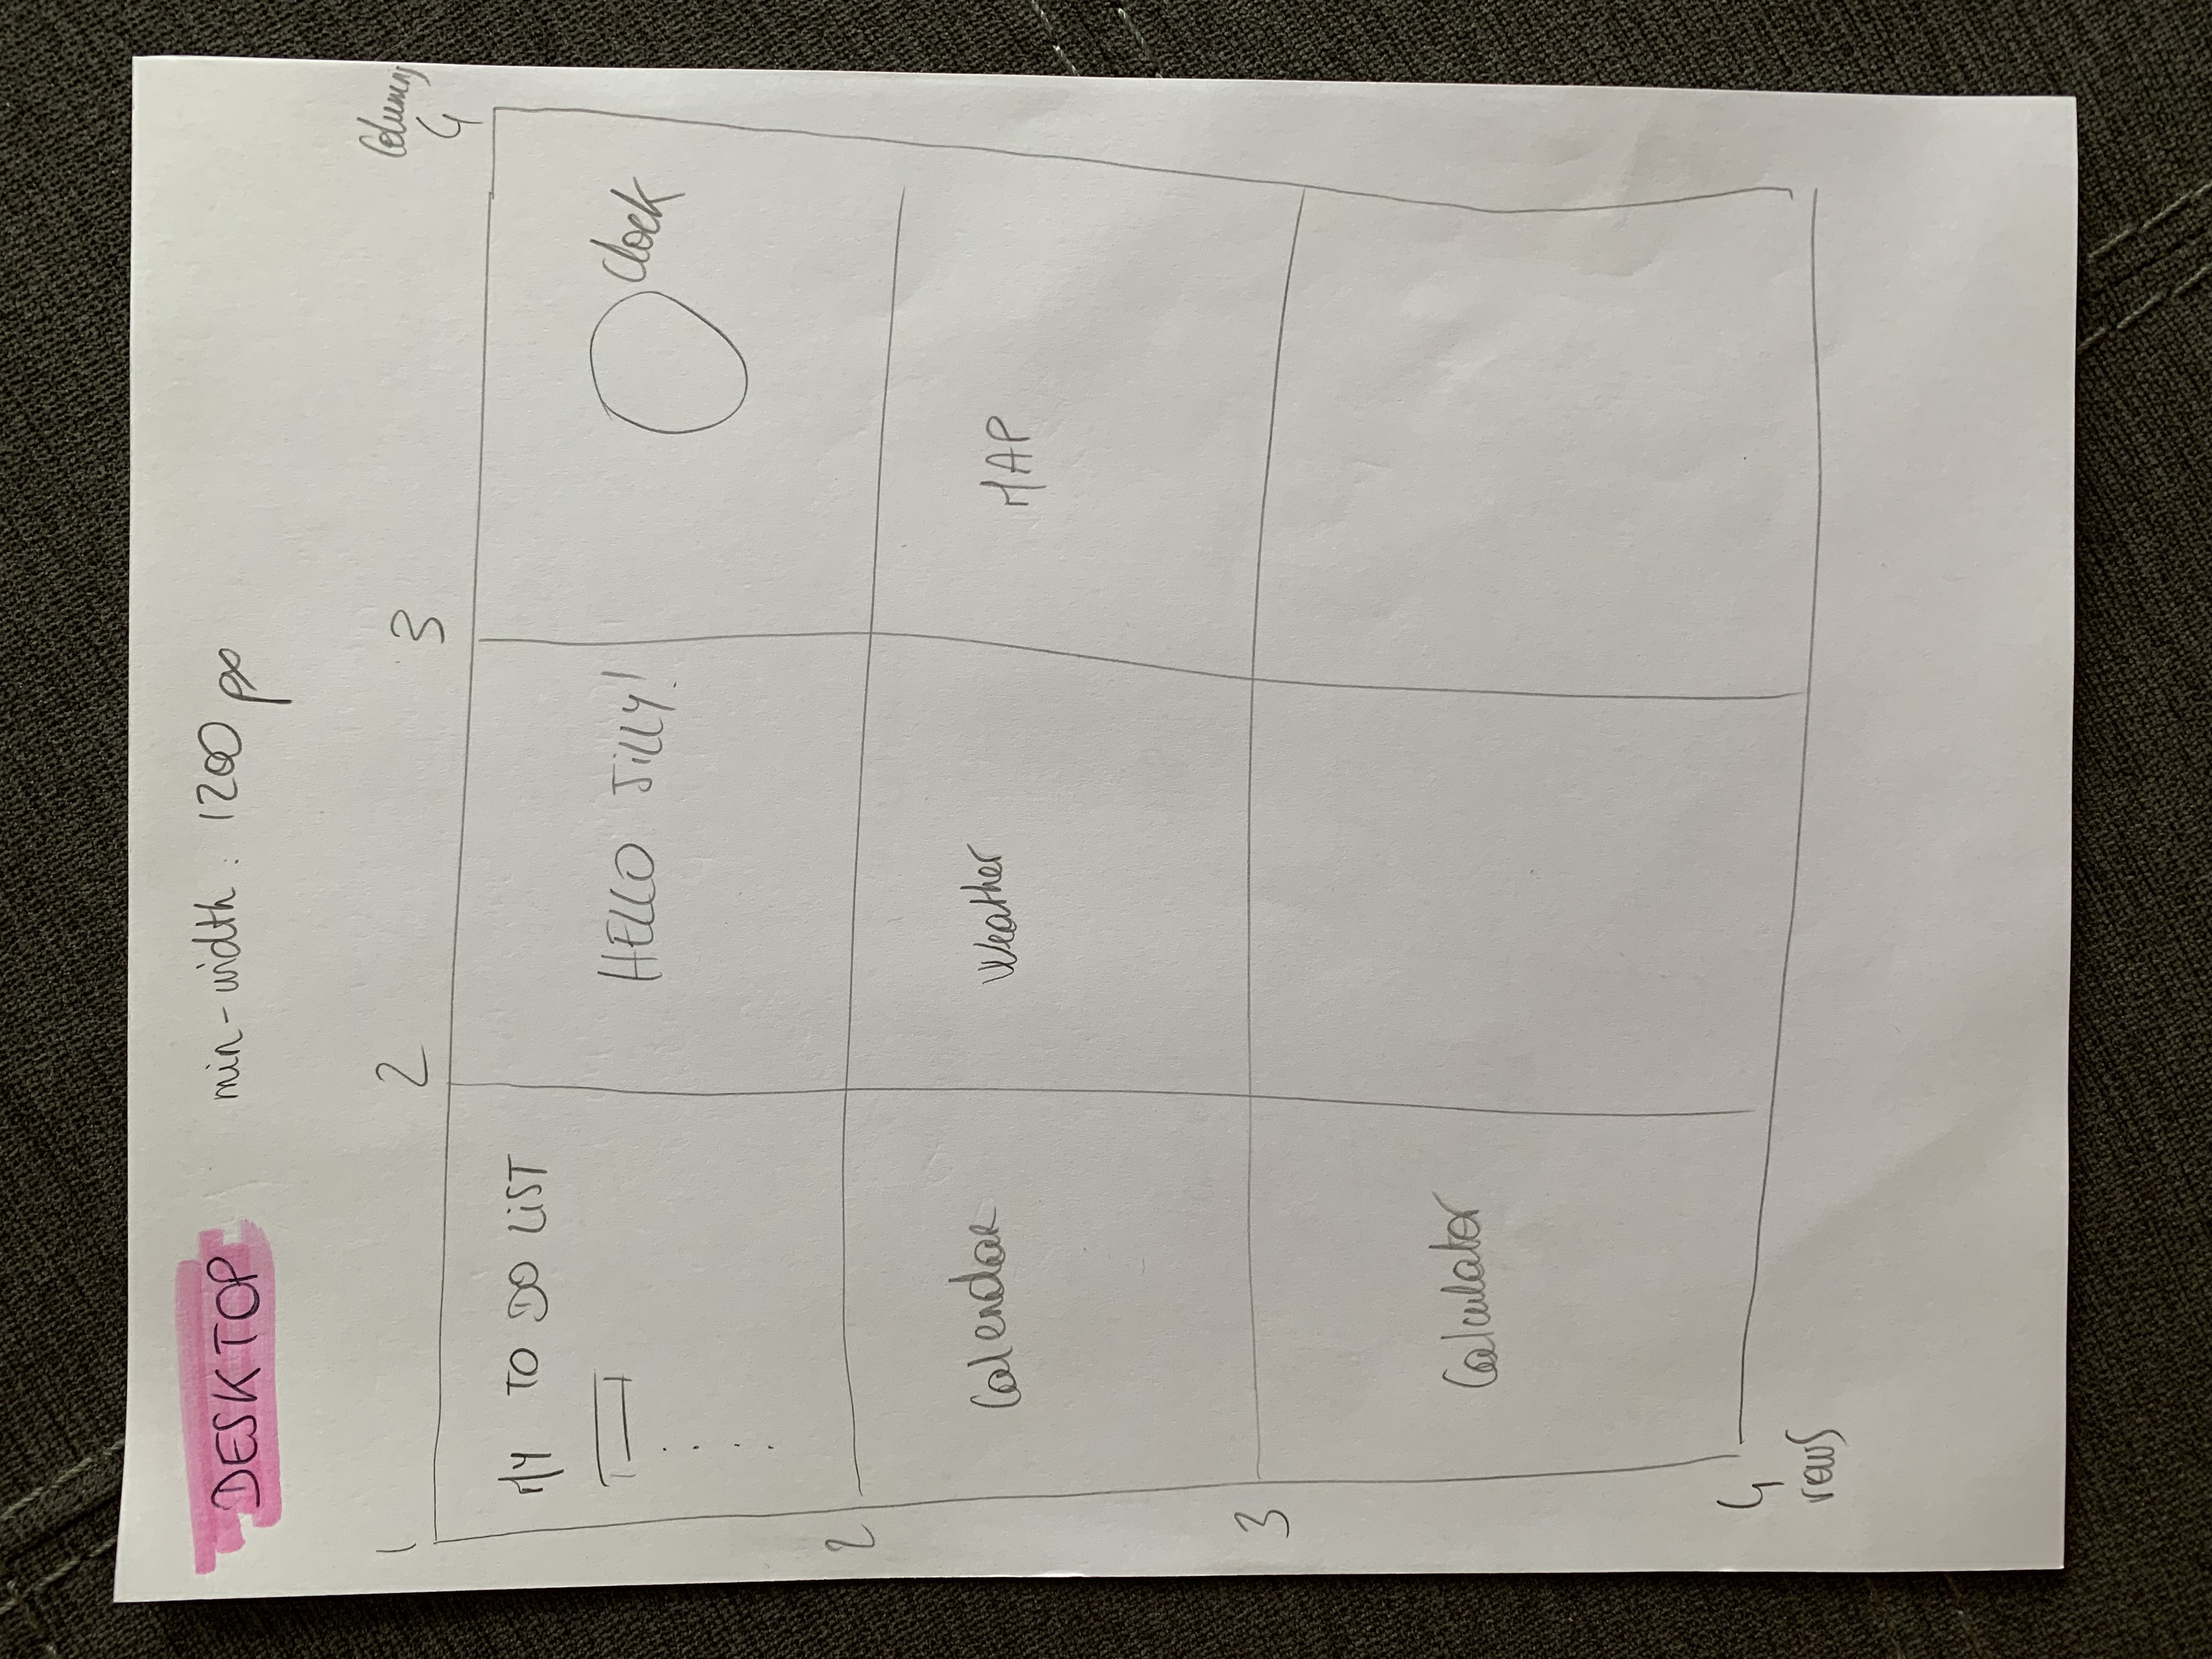 DESKTOP min-width: 1200 px
Columns
1 2 3 4
MY TO DO LIST
HELLO JILLY!
Clock
2
Calendar Weather MAP
3
Calculator
4
rows